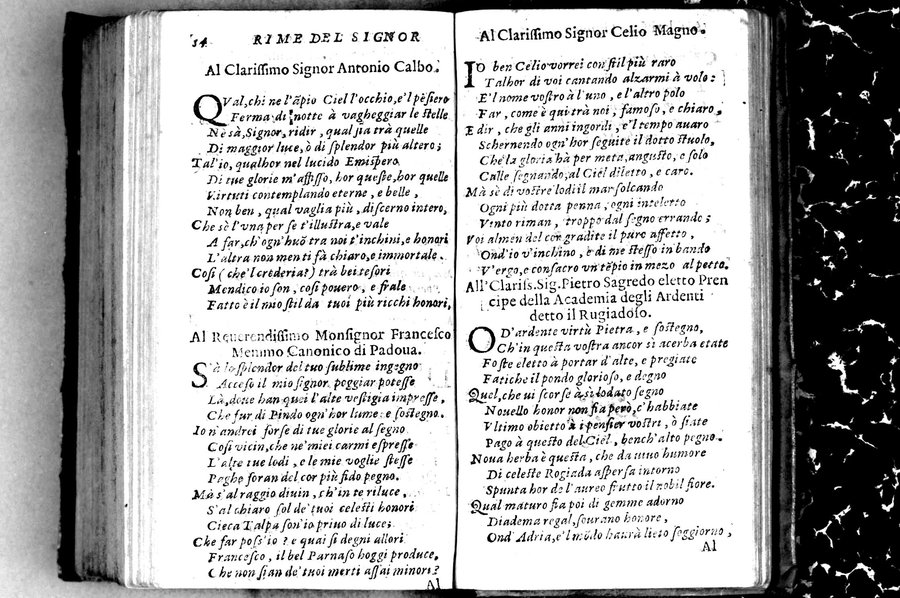 34 RIME DEL SIGNOR
Al Clarissimo Signor Antonio Calbo.
QVal, chi ne l'āpio Ciel l'occhio, e'l pēsiero
Ferma di notte à vagheggiar le stelle
Nè sà, Signor, ridir, qual sia trà quelle
Di maggior luce, ò di splendor più altero;
Tal'io, qualhor nel lucido Emispero
Di tue glorie m'affisso, hor queste, hor quelle
Virtuti contemplando eterne, e belle,
Non ben, qual vaglia più, discerno intero,
Che sè l'vna per se t'illustra, e vale
A far, ch'ogn'huō tra noi t'inchini, e honori
L'altra non men ti fà chiaro, e immortale.
Cosi (che'l crederia?) trà bei tesori
Mendico io son, così pouero, e frale
Fatto è il mio stil da tuoi più ricchi honori.
Al Reuerendissimo Monsignor Francesco
Memmo Canonico di Padoua.
Sà lo splendor del tuo sublime ingegno
Acceso il mio signor, poggiar potesse
Là, doue han quei l'alte vestigia impresse,
Che fur di Pindo ogn'hor lume, e sostegno.
Io n'andrei forse di tue glorie al segno
Cosi vicin, che ne' miei carmi espresse
L'alte tue lodi, e le mie voglie stesse
Pegno foran del cor più fido pegno.
Mà s'al raggio diuin, ch'in te riluce,
S'al chiaro sol de' tuoi celesti honori
Cieca Talpa son'io priuo di luce;
Che far poss'io? e quai si degni allori
Francesco, il bel Parnaso hoggi produce,
Che non sian de' tuoi merti assai minori?
Al
Al Clarissimo Signor Celio Magno.
IO ben Celio vorrei con stil più raro
Talhor di voi cantando alzarmi à volo:
E'l nome vostro à l'uno, e l'altro polo
Far, come è qui trà noi, famoso, e chiaro.
E dir, che gli anni ingordi, e'l tempo auaro
Schernendo ogn'hor seguite il dotto stuolo,
Che la gloria hà per meta, angusto, e solo
Calle segnando, al Ciel diletto, e caro.
Mà sè di vostre lodi il mar solcando
Ogni più dotta penna, ogni inteletto
Vinto riman, troppo dal segno errando;
Voi almen del cor gradite il puro affetto,
Ond'io v'inchino, e di me stesso in bando
V'ergo, e consacro un tēpio in mezo al petto.
All'Clariss. Sig. Pietro Sagredo eletto Pren
cipe della Academia degli Ardenti
detto il Rugiadoso.
O D'ardente virtù Pietra, e sostegno,
Ch'in questa vostra ancor sì acerba etate
Foste eletto à portar d'alte, e pregiate
Fatiche il pondo glorioso, e degno
Quel, che ui scorse à sì lodato segno
Nouello honor non fia però, c'habbiate
Vltimo obietto à i pensier vostri, ò siate
Pago à questo del Ciel, bench'alto pegno.
Noua herba è questa, che da uiuo humore
Di celeste Rogiada aspersa intorno
Spunta hor de l'aureo frutto il nobil fiore.
Qual maturo fia poi di gemme adorno
Diadema regal, sourano honore,
Ond'Adria, e'l mōdo haurà lieto soggiorno,
Al